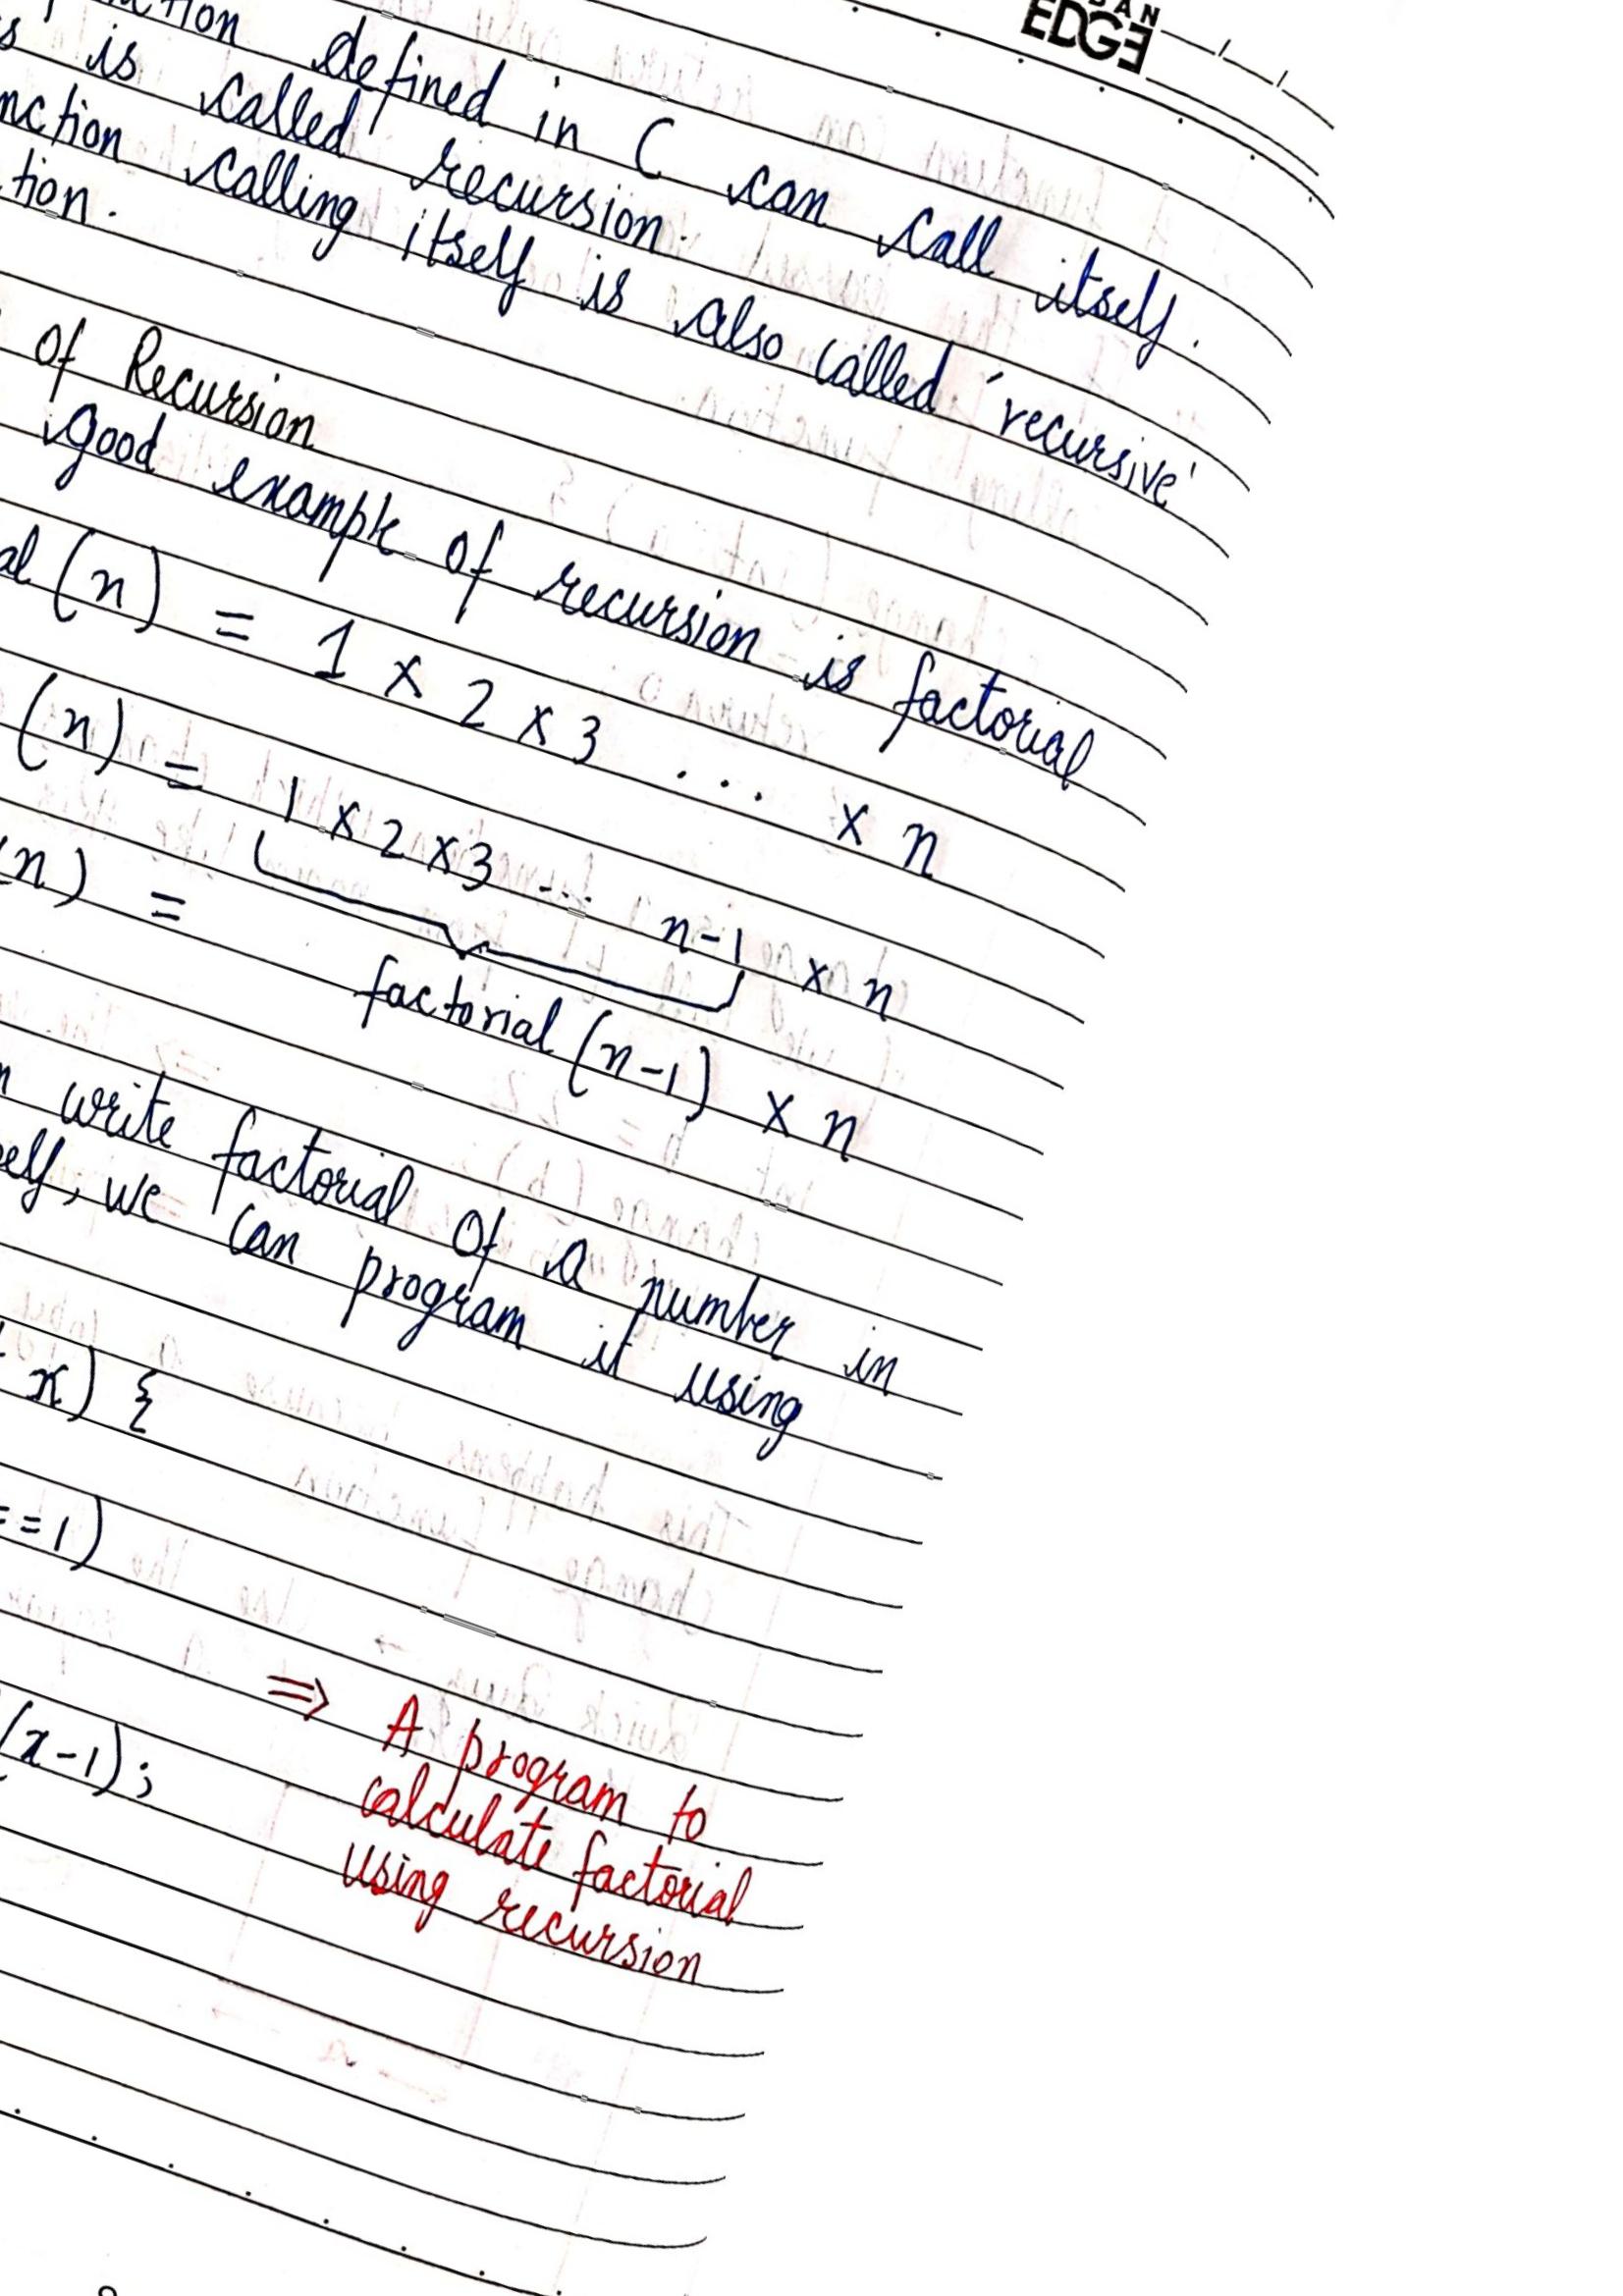 EDGE
defined in C can call itself.
is called recursion.
calling itself is also called 'recursive'
of Recursion
good example of recursion is factorial
(n) = 1 × 2 × 3 ... × n
(n) = 1 × 2 × 3 ... n-1 × n
n) = factorial (n-1) × n
write factorial of a number in
we can program it using
x) {
==1)
(x-1);
⇒ A program to
calculate factorial
using recursion